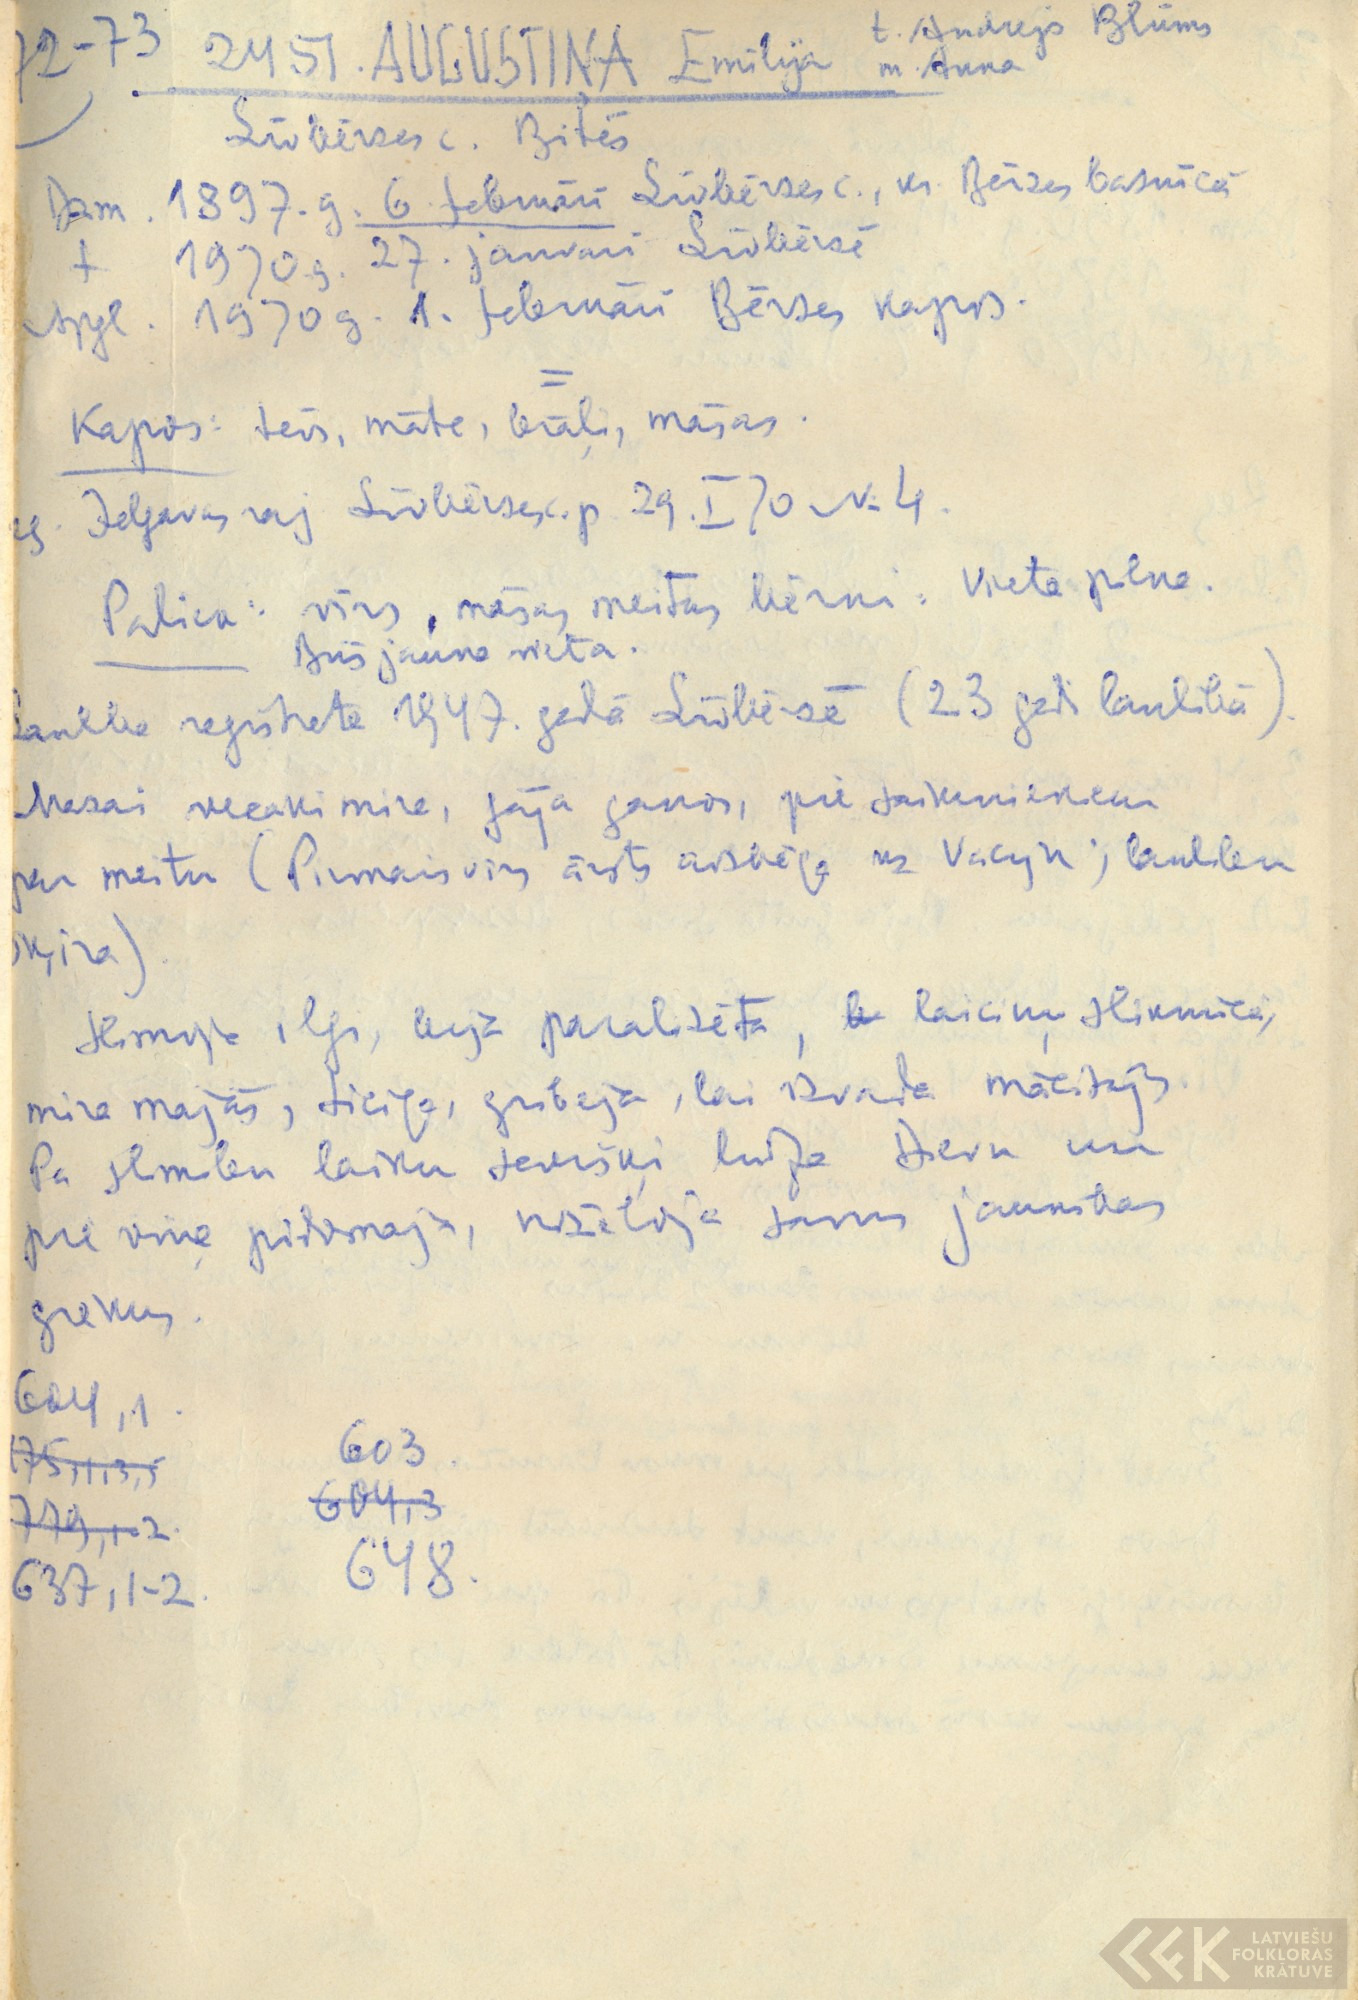 72-73 2451. AUGUSTIŅA Emilija t. Andrejs Blūms
m. Anna
Līvbērzes c. Bitēs
Dzim. 1897. g. 6 februārī Līvbērzes c., kr. Bērzes baznīcā
+ 1970 g. 27. janvarī Līvbērzē
Apgl. 1970 g. 1. februārī Bērzes kapos.
=
Kapos: tēvs, māte, brāļi, māsas.
Jelgavas raj Līvbērzes c. p 29. I 70 N: 4.
Palica: vīrs, māsas meitas bērni. Vieta pilna.
Būs jauna vieta.
Laulība reģistrēta 1947. gadā Līvbērzē (23 gadi laulībā).
Mazai vecāki mira, gāja ganos, pie saimniekiem
par meitu (Pirmais vīrs ārsts aizbēga uz Vāciju, laulību
šķīra)
Slimoja ilgi, bija paralizēta, laiciņu slimnīcā,
mira mājās, ticīga, gribēja, lai izvada mācītājs.
Pa slimību laiku sevišķi lūdza Dievu un
pie viņa pieķērās, nožēloja savus jaunības
grēkus.
604,1.
175,1,3,5
603
779,1-2.
604,3
637,1-2.
648.
LATVIEŠU
FOLKLORAS
KRĀTUVE